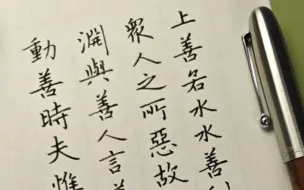 上善若水水善利
眾人之所惡故
淵與善人言善
動善時夫惟